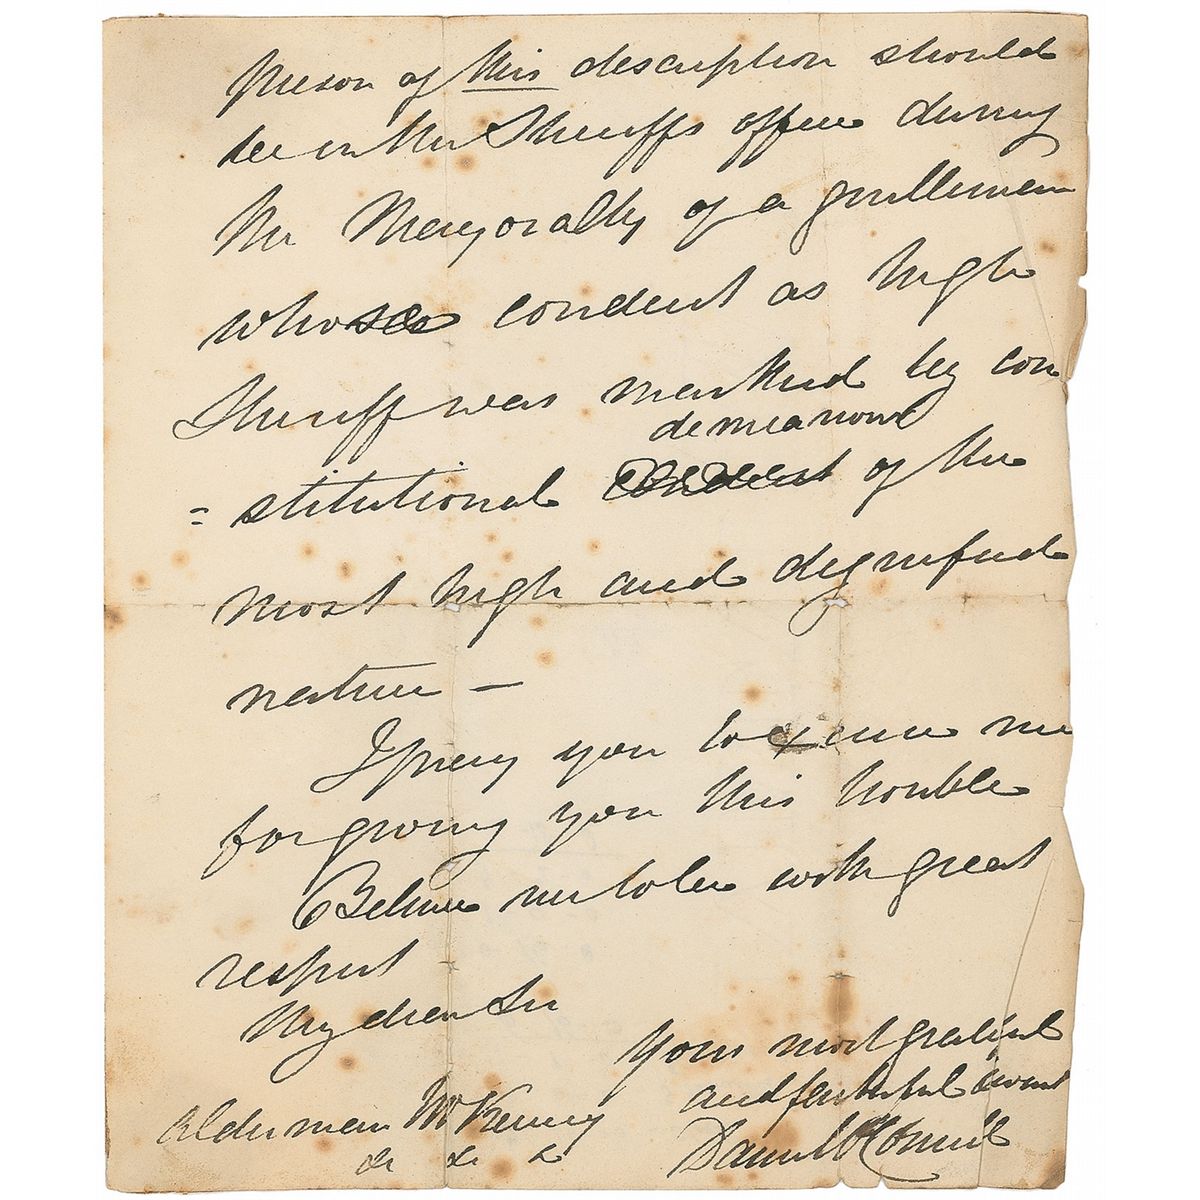 person of this description should
be in the Sheriffs office during
the Mayoralty of a gentleman
whose conduct as high
Sheriff was marked by con
demeanour
= stitutional conduct of the
most high and dignified
nature —
I pray you to excuse me
for giving you this trouble
Believe me to be with great
respect
My dear Sir
Yours most grateful
and faithful servant
Alderman McKenny
Daniel O'Connell
&c &c &c